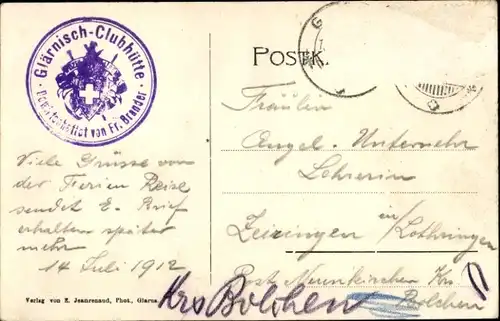 Glärnisch-Clubhütte
Bewirtschaftet von Fr. Brander
POSTK.
Fräulein
Angel. Unternehr
Lehrerin
Zeiringen in/Lothringen
Post Neunkirchen Krs.
Bolchen
Krs Bolchen
Viele Grüsse von
der Ferien Reise
sendet E. Brief
erhalten später
mehr
14 Juli 1912
Verlag von E. Jeanrenaud, Phot., Glarus